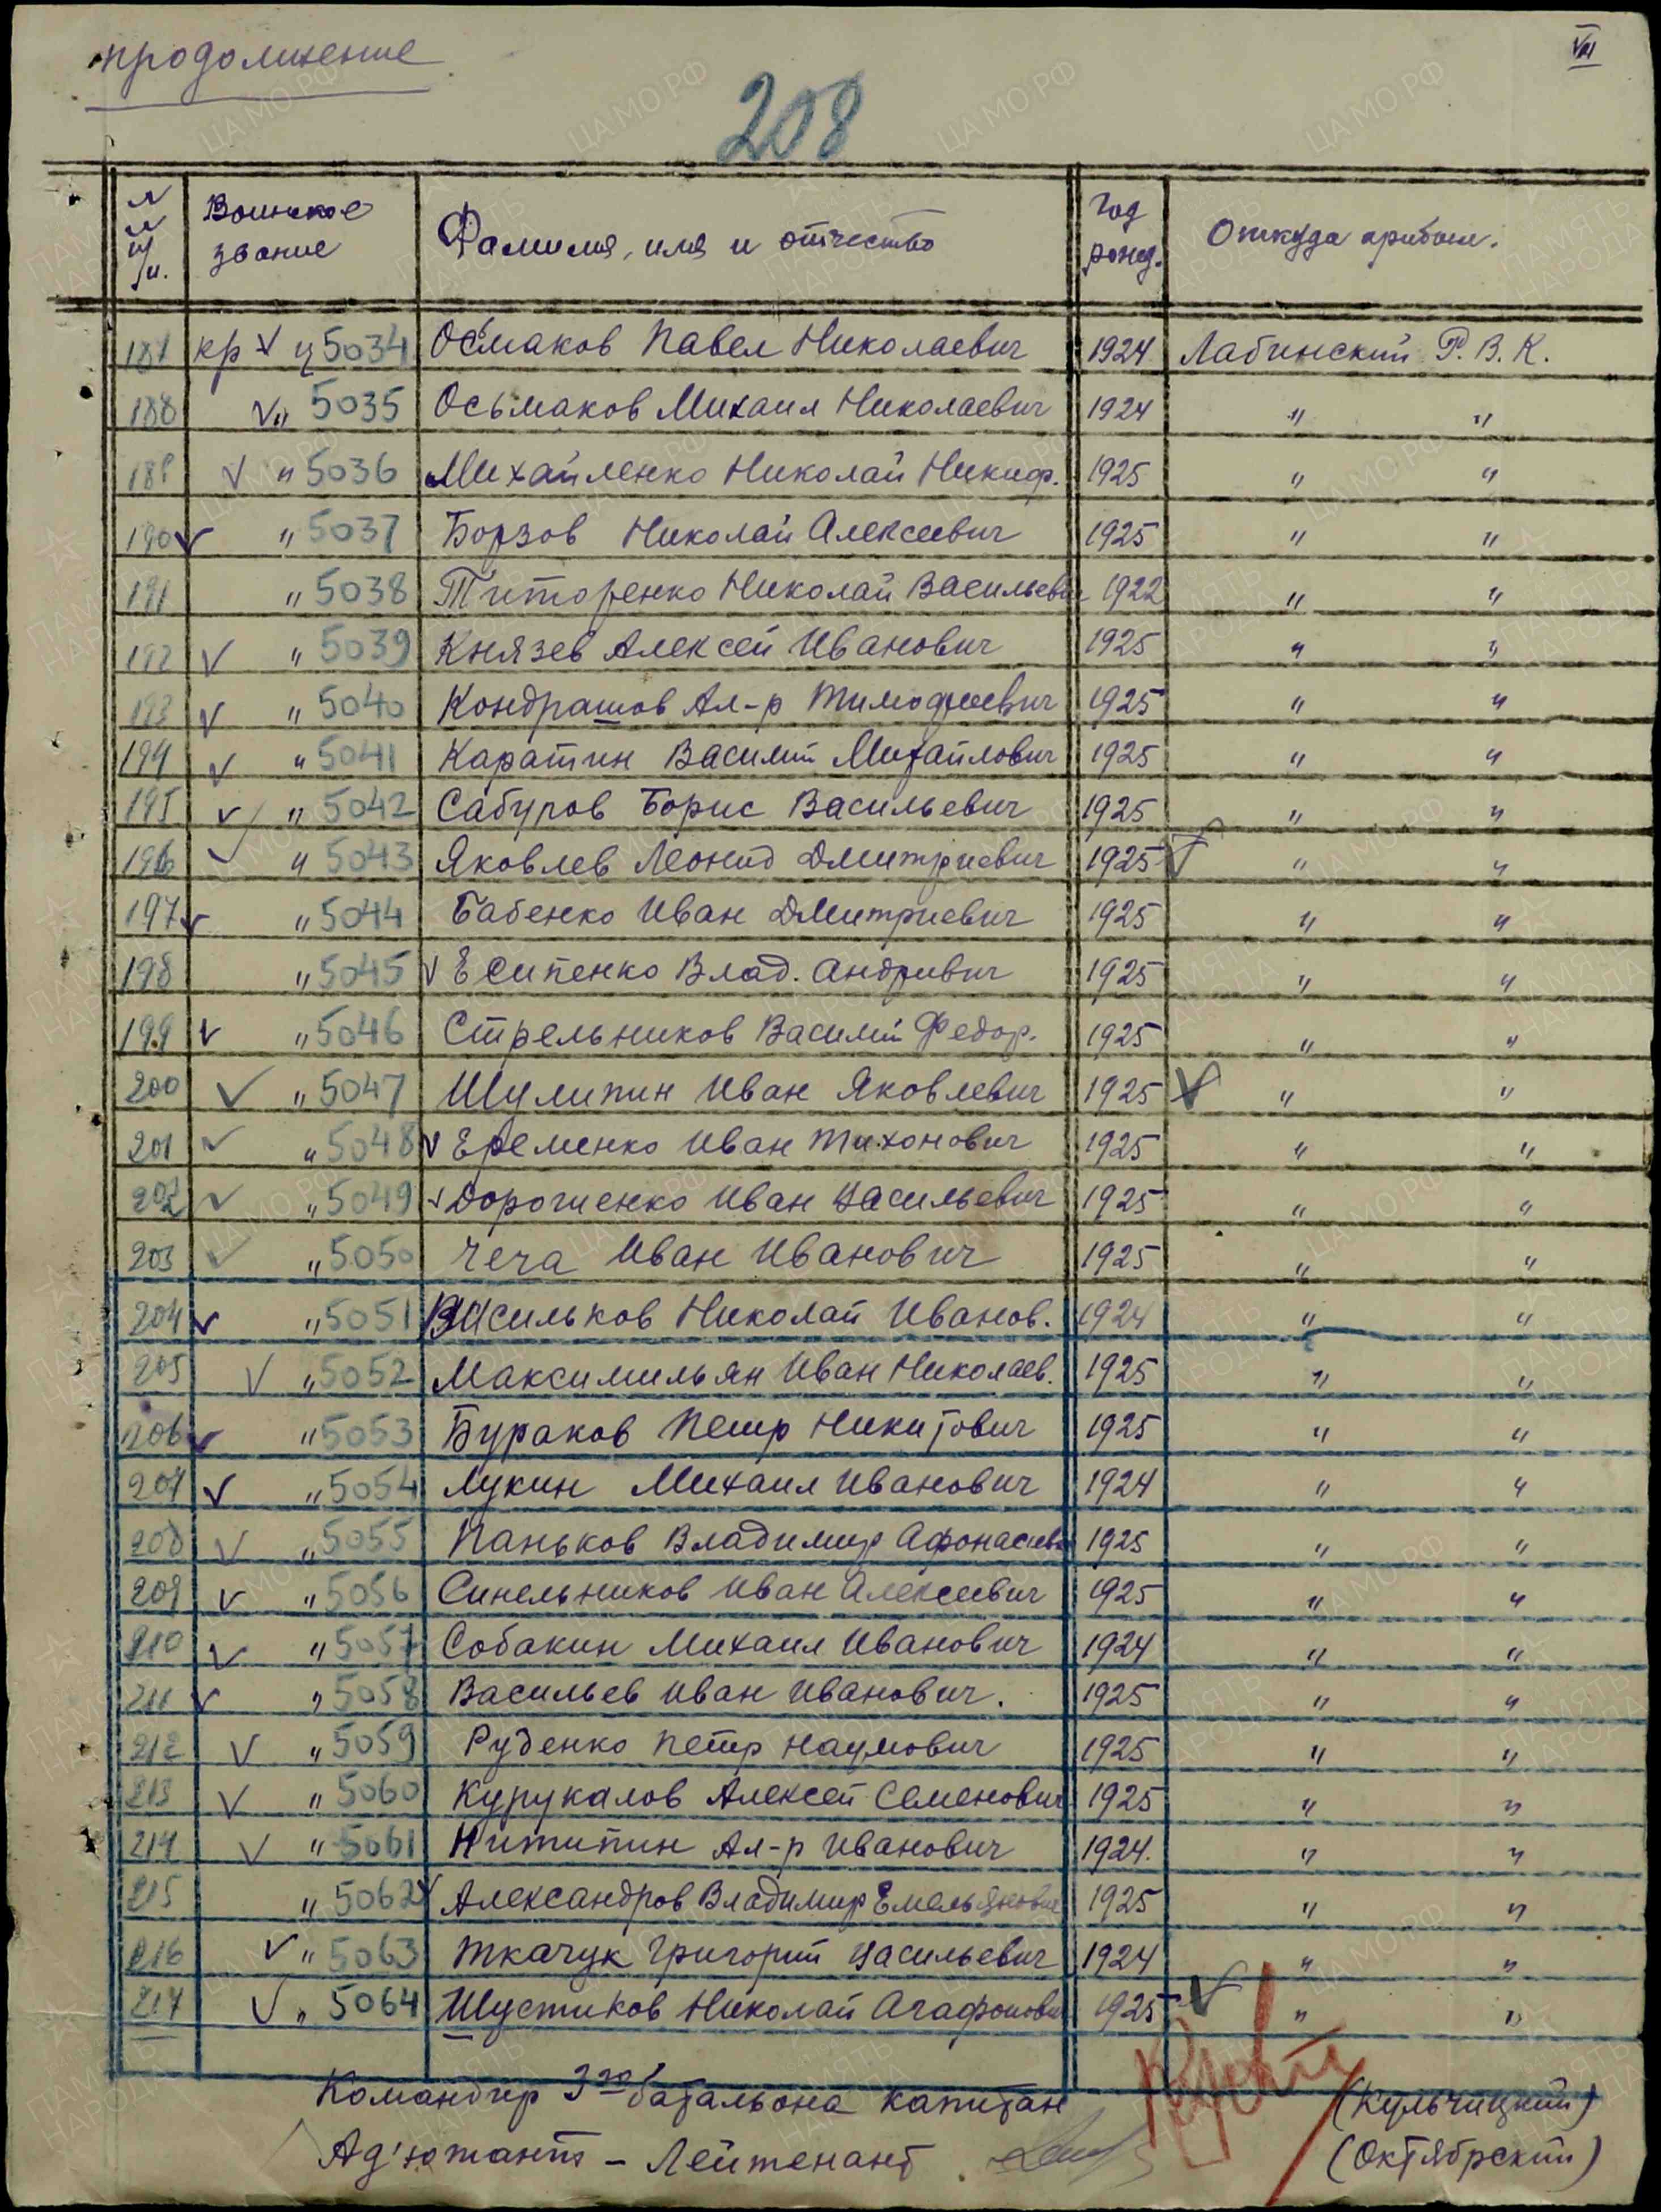 продолжение
VIII
208
№№ п/п. Воинское звание Фамилия, имя и отчество Год рожд. Откуда прибыл.
187 кр-ц 5034 Осьмаков Павел Николаевич 1924 Лабинский Р.В.К.
188 " 5035 Осьмаков Михаил Николаевич 1924 " "
189 " 5036 Михайленко Николай Никиф. 1925 " "
190 " 5037 Борзов Николай Алексеевич 1925 " "
191 " 5038 Титоренко Николай Васильевич 1922 " "
192 " 5039 Князев Алексей Иванович 1925 " "
193 " 5040 Кондрашов Ал-р Тимофеевич 1925 " "
194 " 5041 Каратин Василий Михайлович 1925 " "
195 " 5042 Сабуров Борис Васильевич 1925 " "
196 " 5043 Яковлев Леонид Дмитриевич 1925 " "
197 " 5044 Бабенко Иван Дмитриевич 1925 " "
198 " 5045 Есипенко Влад. Андревич 1925 " "
199 " 5046 Стрельников Василий Федор. 1925 " "
200 " 5047 Шулипин Иван Яковлевич 1925 " "
201 " 5048 Еременко Иван Тихонович 1925 " "
202 " 5049 Дорогиенко Иван Васильевич 1925 " "
203 " 5050 Чеча Иван Иванович 1925 " "
204 " 5051 Васильков Николай Иванов. 1924 " "
205 " 5052 Максимильян Иван Николаев. 1925 " "
206 " 5053 Бураков Петр Никитович 1925 " "
207 " 5054 Лукин Михаил Иванович 1924 " "
208 " 5055 Паньков Владимир Афонасьев 1925 " "
209 " 5056 Синельников Иван Алексеевич 1925 " "
210 " 5057 Собакин Михаил Иванович 1924 " "
211 " 5058 Васильев Иван Иванович. 1925 " "
212 " 5059 Руденко Петр Наумович 1925 " "
213 " 5060 Курукалов Алексей Семенович 1925 " "
214 " 5061 Нитипин Ал-р Иванович 1924. " "
215 " 5062 Александров Владимир Емельянович 1925 " "
216 " 5063 Ткачук Григорий Васильевич 1924 " "
217 " 5064 Шустиков Николай Агафонович 1925 " "
Командир 3го батальона капитан (Кульчицкий)
Ад'ютант – Лейтенант (Октябрский)